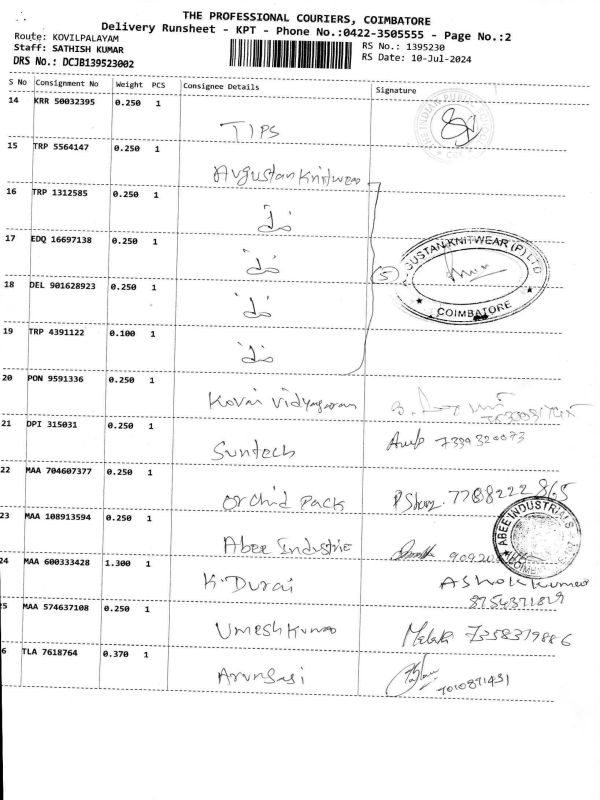 THE PROFESSIONAL COURIERS, COIMBATORE
Delivery Runsheet - KPT - Phone No.:0422-3505555 - Page No.:2
Route: KOVILPALAYAM
Staff: SATHISH KUMAR
DRS No.: DCJB139523002
RS No.: 1395230
RS Date: 10-Jul-2024
S No Consignment No Weight PCS Consignee Details Signature
14 KRR 50032395 0.250 1 TIPS
15 TRP 5564147 0.250 1 Avgustan Knitwear
16 TRP 1312585 0.250 1
17 EDQ 16697138 0.250 1
18 DEL 901628923 0.250 1
19 TRP 4391122 0.100 1
5
GUSTAN KNITWEAR (P) LTD
COIMBATORE
20 PON 9591336 0.250 1 Kovai Vidyasaram
21 DPI 315031 0.250 1 Suntech 7339320073
22 MAA 704607377 0.250 1 Orchid Pack 7708222865
23 MAA 108913594 0.250 1 Abee Industrie
ABEE INDUSTRIES
24 MAA 600333428 1.300 1 K. Durai Ashok Kumar
8754371829
5 MAA 574637108 0.250 1 Umesh Kumar 7358379886
6 TLA 7618764 0.370 1 Arunsasi 7010871431